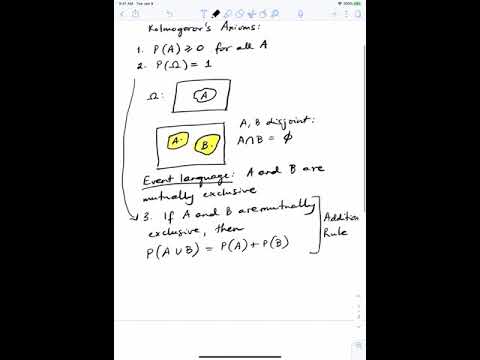 9:41 AM Tue Jan 9
Kolmogorov's Axioms:
1. P(A) ≥ 0 for all A
2. P(Ω) = 1
Ω:
A
A, B disjoint:
A B
A∩B = ϕ
Event language: A and B are
mutually exclusive
3. If A and B are mutually
exclusive, then
P(A ∪ B) = P(A) + P(B)
Addition
Rule